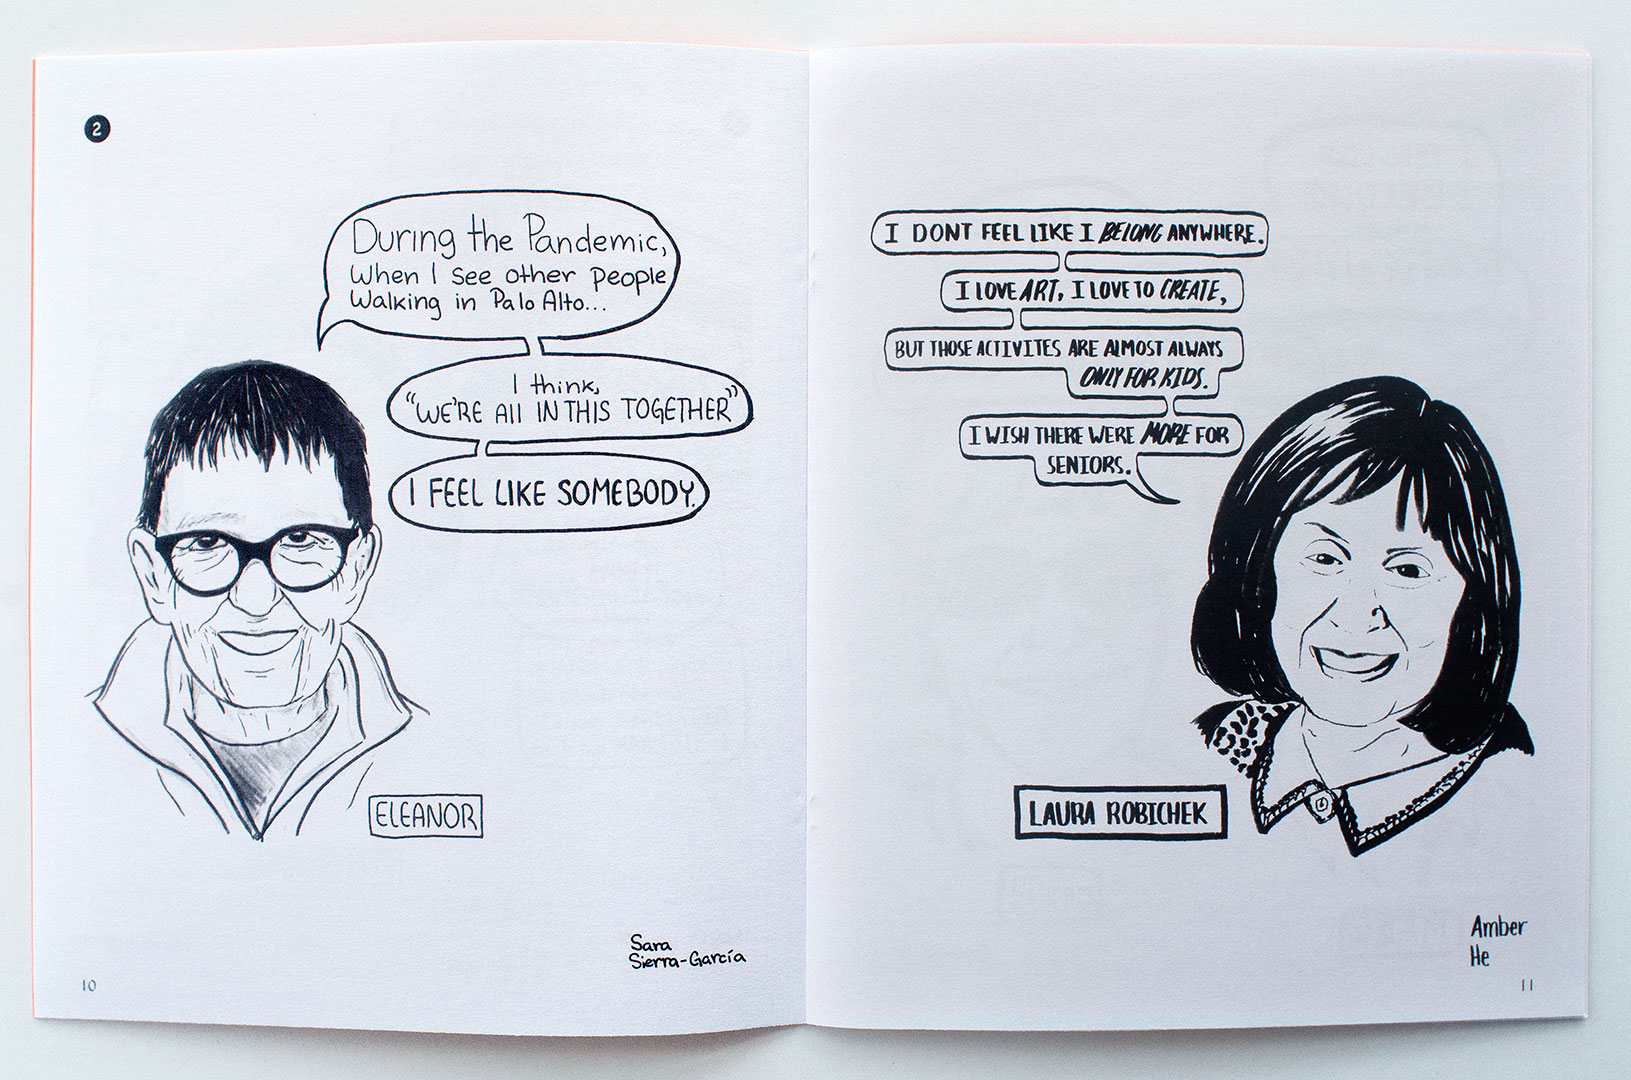 2
During the Pandemic,
When I see other people
Walking in Palo Alto...
I think,
"WE'RE All IN THIS TOGETHER"
I FEEL LIKE SOMEBODY.
ELEANOR
Sara
Sierra-García
10
I DONT FEEL LIKE I BELONG ANYWHERE.
I LOVE ART, I LOVE TO CREATE,
BUT THOSE ACTIVITES ARE ALMOST ALWAYS
ONLY FOR KIDS.
I WISH THERE WERE MORE FOR
SENIORS.
LAURA ROBICHEK
Amber
He
11